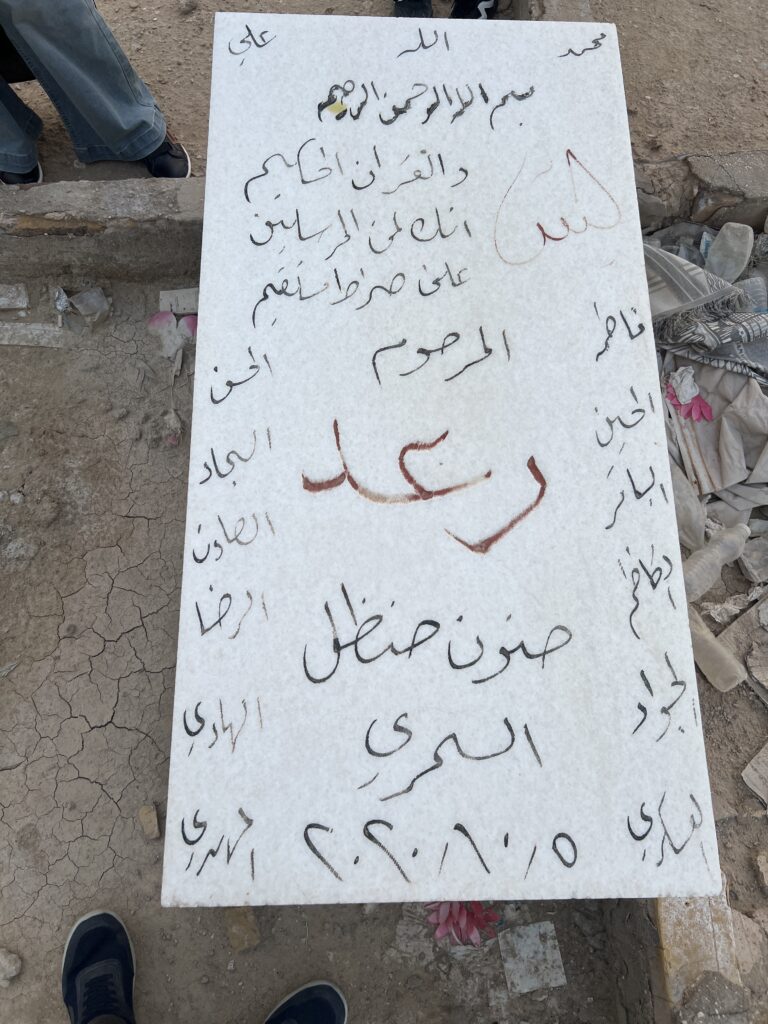 محمد الله علي
بسم الله الرحمن الرحيم
يس
والقرأن الحكيم
انك لمن المرسلين
على صراط مستقيم
المرحوم
رعد
صنون حنظل
السمري
٢٠٢٠/١٠/٥
فاطمه
الحسن
الحسين
السجاد
الباقر
الصادق
الكاظم
الرضا
الجواد
الهادي
العسكري
المهدي